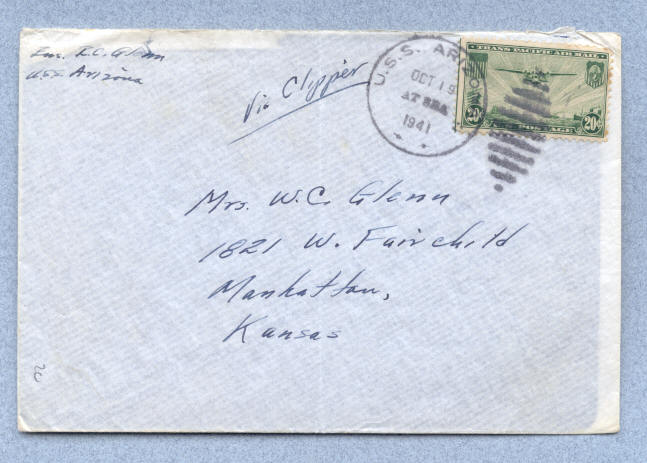 Ens. R.C. Glenn
USS Arizona
Via Clipper
U.S.S. ARIZ
OCT 19
AT SEA
1941
TRANS-PACIFIC AIR MAIL
20¢ POSTAGE 20¢
Mrs. W.C. Glenn
1821 W. Fairchild
Manhattan,
Kansas